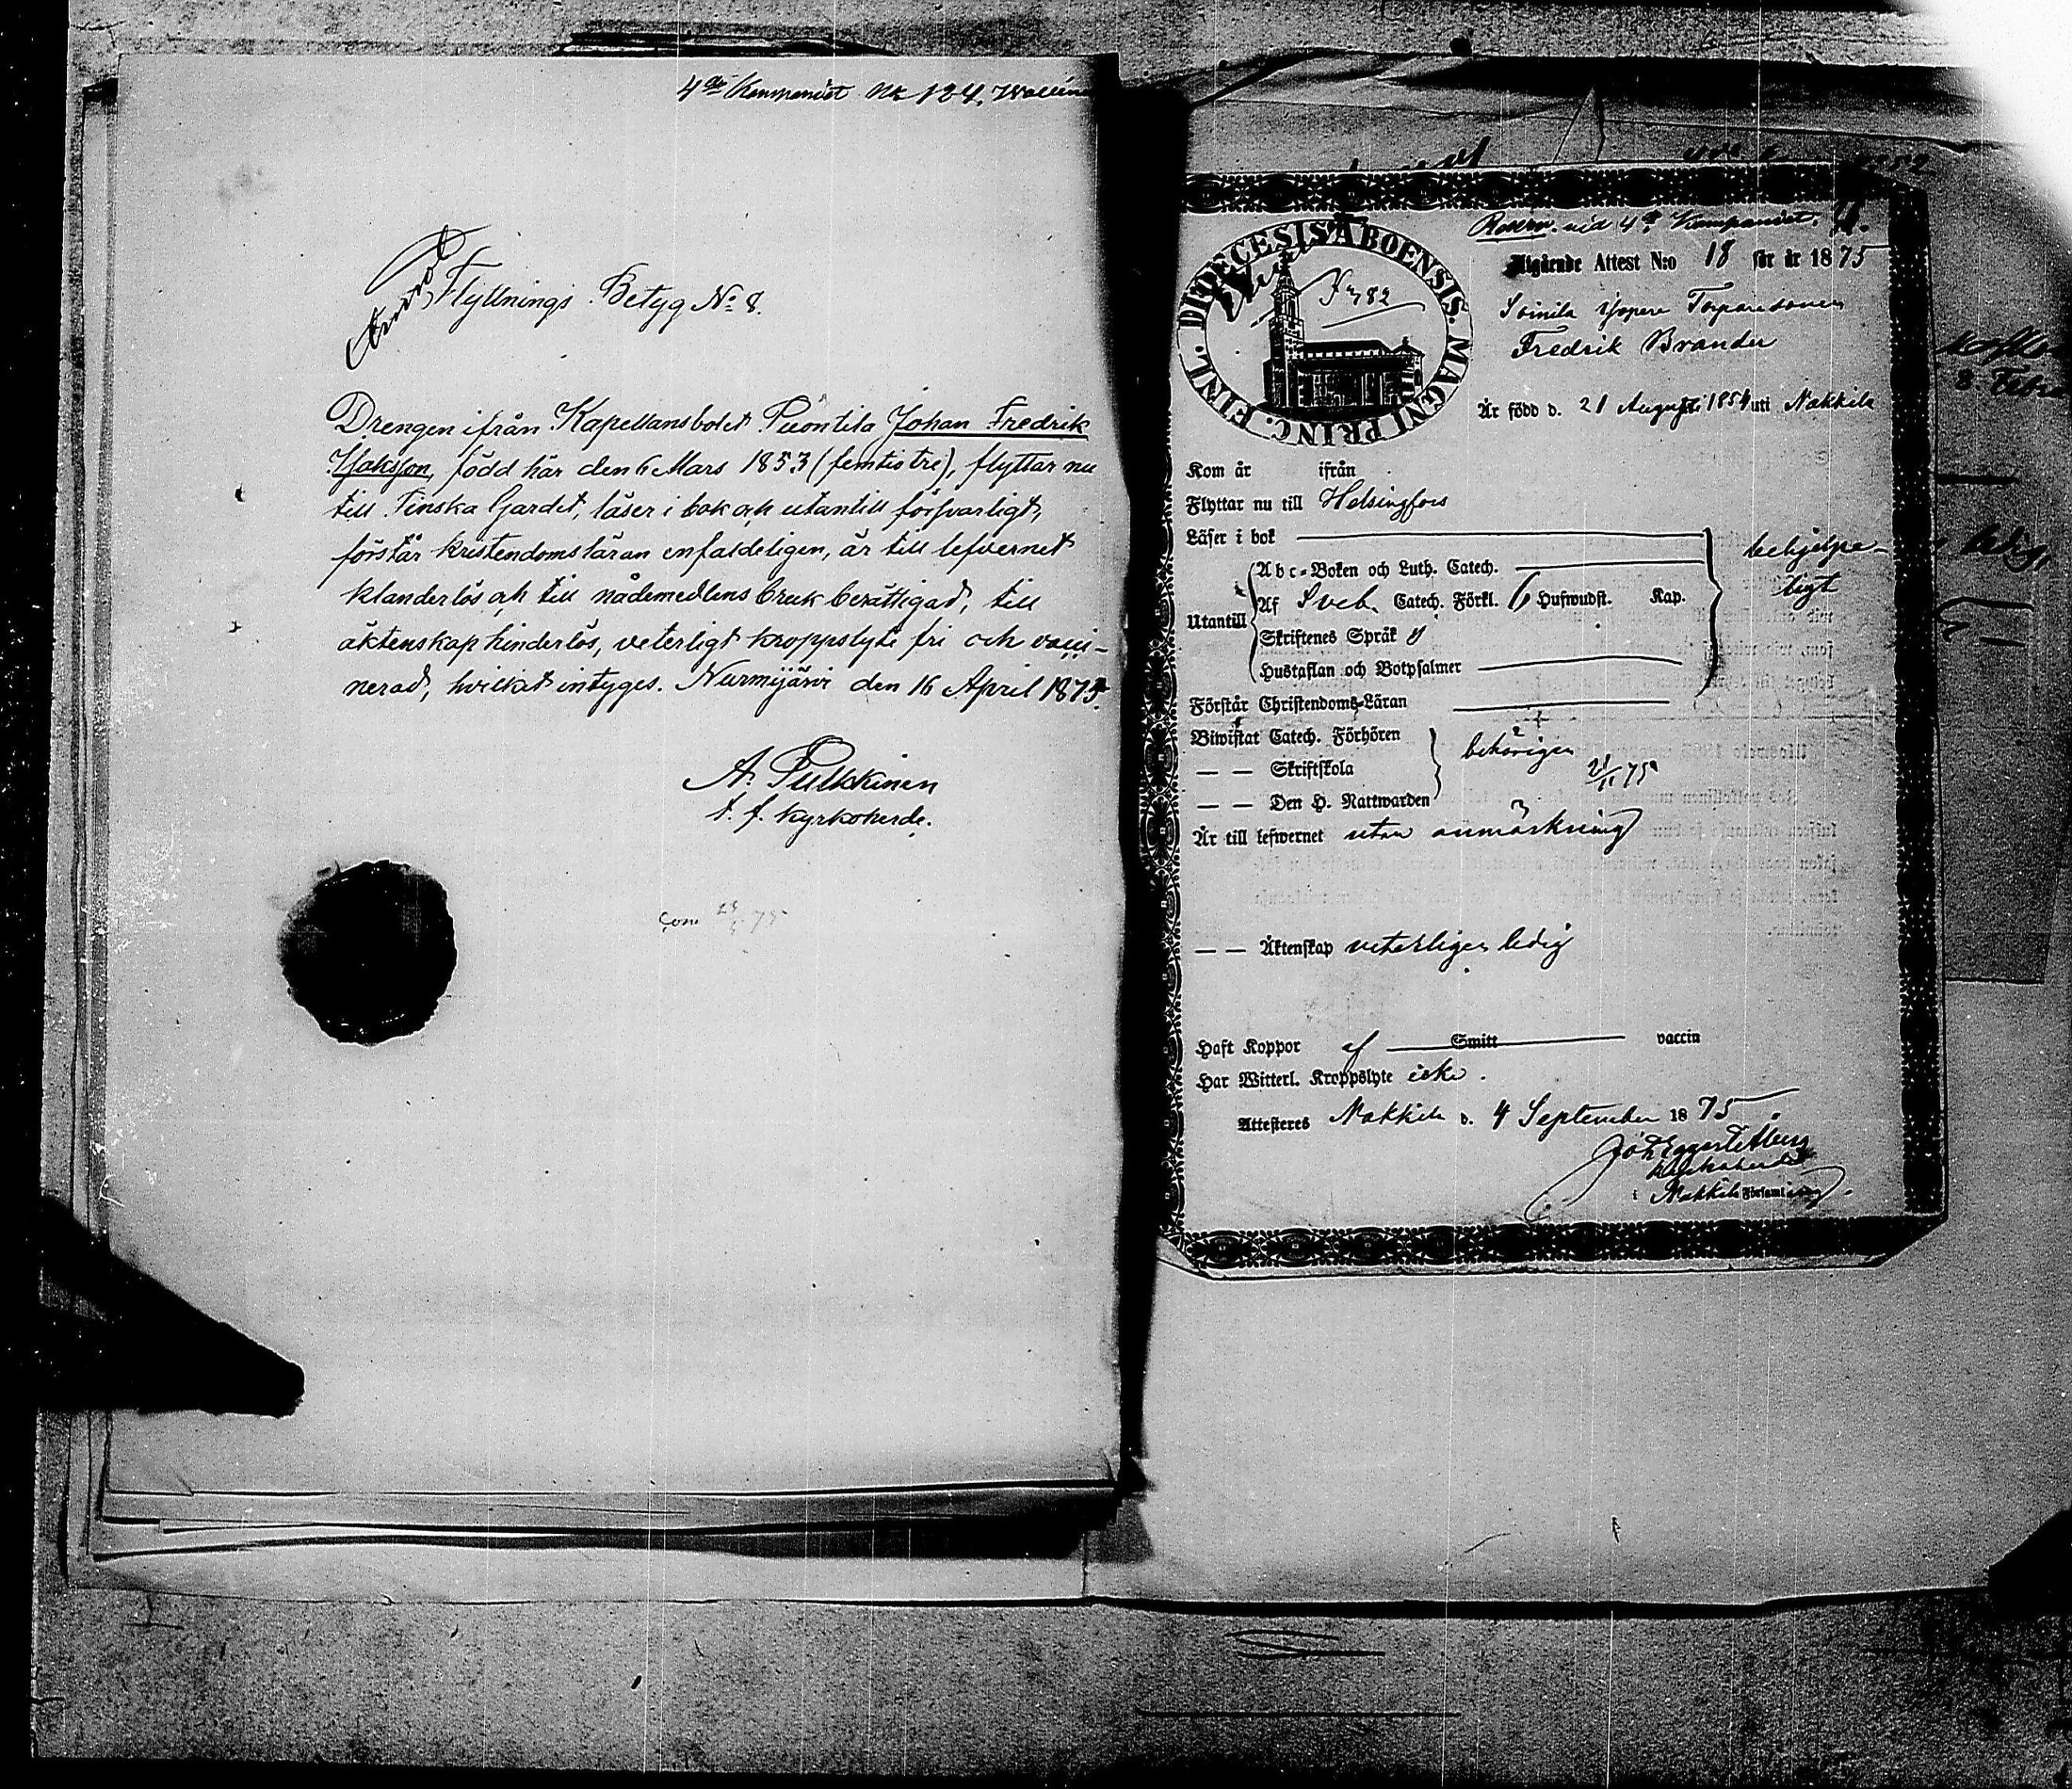 4de Kompaniet No 124.
Flyttnings Betyg No 8.
Drengen ifrån Kapellansbolet Puontila Johan Fredrik
Isaksson, född här den 6 Mars 1853 (femtiotre), flyttar nu
till Finska Gardet, läser i bok och utantill försvarligt,
förstår kristendomsläran enfaldeligen, är till lefvernet
klanderlös och till nådemedlens bruk berättigad, till
äktenskap hinderlös, veterligt kroppslyte fri och vacci-
nerad, hvilket intyges. Nurmijärvi den 16 April 1875.
A. Pulkkinen
t. f. kyrkoherde.
Com 75
vid 4de Kompaniet.
DIOECESIS ÅBOENSIS. MAGNI PRINC. FINL.
F 382
Utgående Attest N:o 18 för år 1875
Soinila
Fredrik Brander
Är född d. 21 Augusti 1854 uti Nakkila
Kom år ifrån
Flyttar nu till Helsingfors
Läser i bok
behjelpe-
ligt
Abc-Boken och Luth. Catech.
Utantill
Af Sveb. Catech. Förkl. 6 Hufwudst. Kap.
Skriftenes Språk
Hustaflan och Botpsalmer
Förstår Christendoms-Läran
Biwistat Catech. Förhören
— — Skriftskola
behörigen
— — Den H. Nattwarden
Är till lefwernet utan anmärkning
— — Äktenskap veterligen ledig
Haft Koppor af Smitt vaccin
Har Witterl. Kroppslyte icke.
Attesteres Nakkila d. 4 September 1875
Kyrkoherde
i Nakkila Församling.